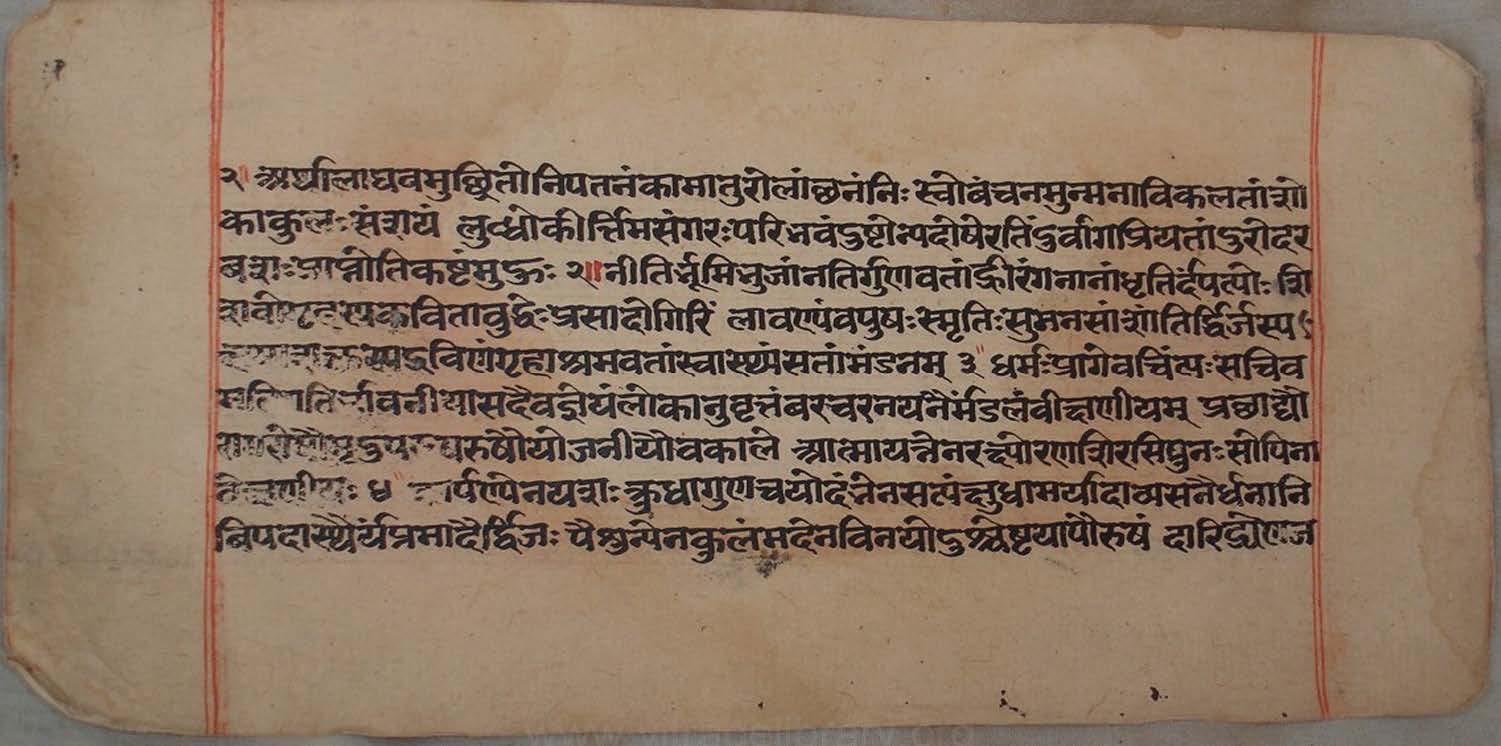 २॥ अर्थीलाघवमुछ्रितोनिपतनंकामातुरोलांछनंनिःस्वोवंचनमुन्मनाविकलतांशो
काकुलःसंशयं लुब्धोकीर्त्तिमसंगरःपरिभवंदुष्टोन्यदोषेरतिंदुर्वागप्रियतांदुरोदर
वशःप्राप्नोतिकष्टंमुहुः २॥ नीतिर्भूमिभुजांनतिर्गुणवतांह्रीरंगनानांधृतिर्दंपत्योः शि
कविताबुद्धेःप्रसादोगिरिं लावण्यंवपुषःस्मृतिःसुमनसांशांतिर्द्विजस्य
द्रविणंगृहाश्रमवतांस्वास्थ्यंसतांमंडनम् ३॥ धर्मःप्रागेवचिंत्यःसचिव
लोकानुवृत्तंवरचरनयनैर्मंडलंवीक्षणीयम् प्रछाद्यौ
परुषौयोजनीयौवकाले आत्मायत्नेनरक्ष्योरणशिरसिपुनःसोपिना
४॥ यशःक्रुधागुणचयोदंभेनसत्यंक्षुधामर्यादाव्यसनैर्धनानि
विपदास्थैर्यंप्रमादैर्द्विजः पैशुन्येनकुलंमदेनविनयोदुश्चेष्टयापौरुषं दारिद्र्येणज